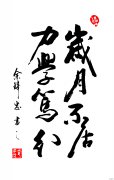 歲月不居
力學篤行
余祥忠書